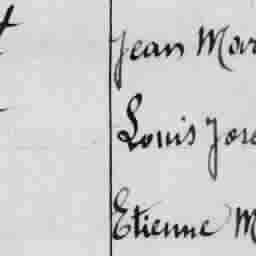 Jean Mar
Louis Jose
Etienne M